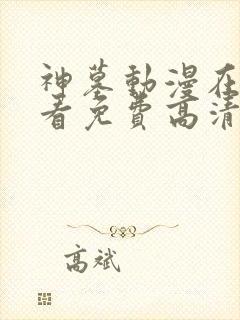 神墓動漫在
看免費高清
高斌